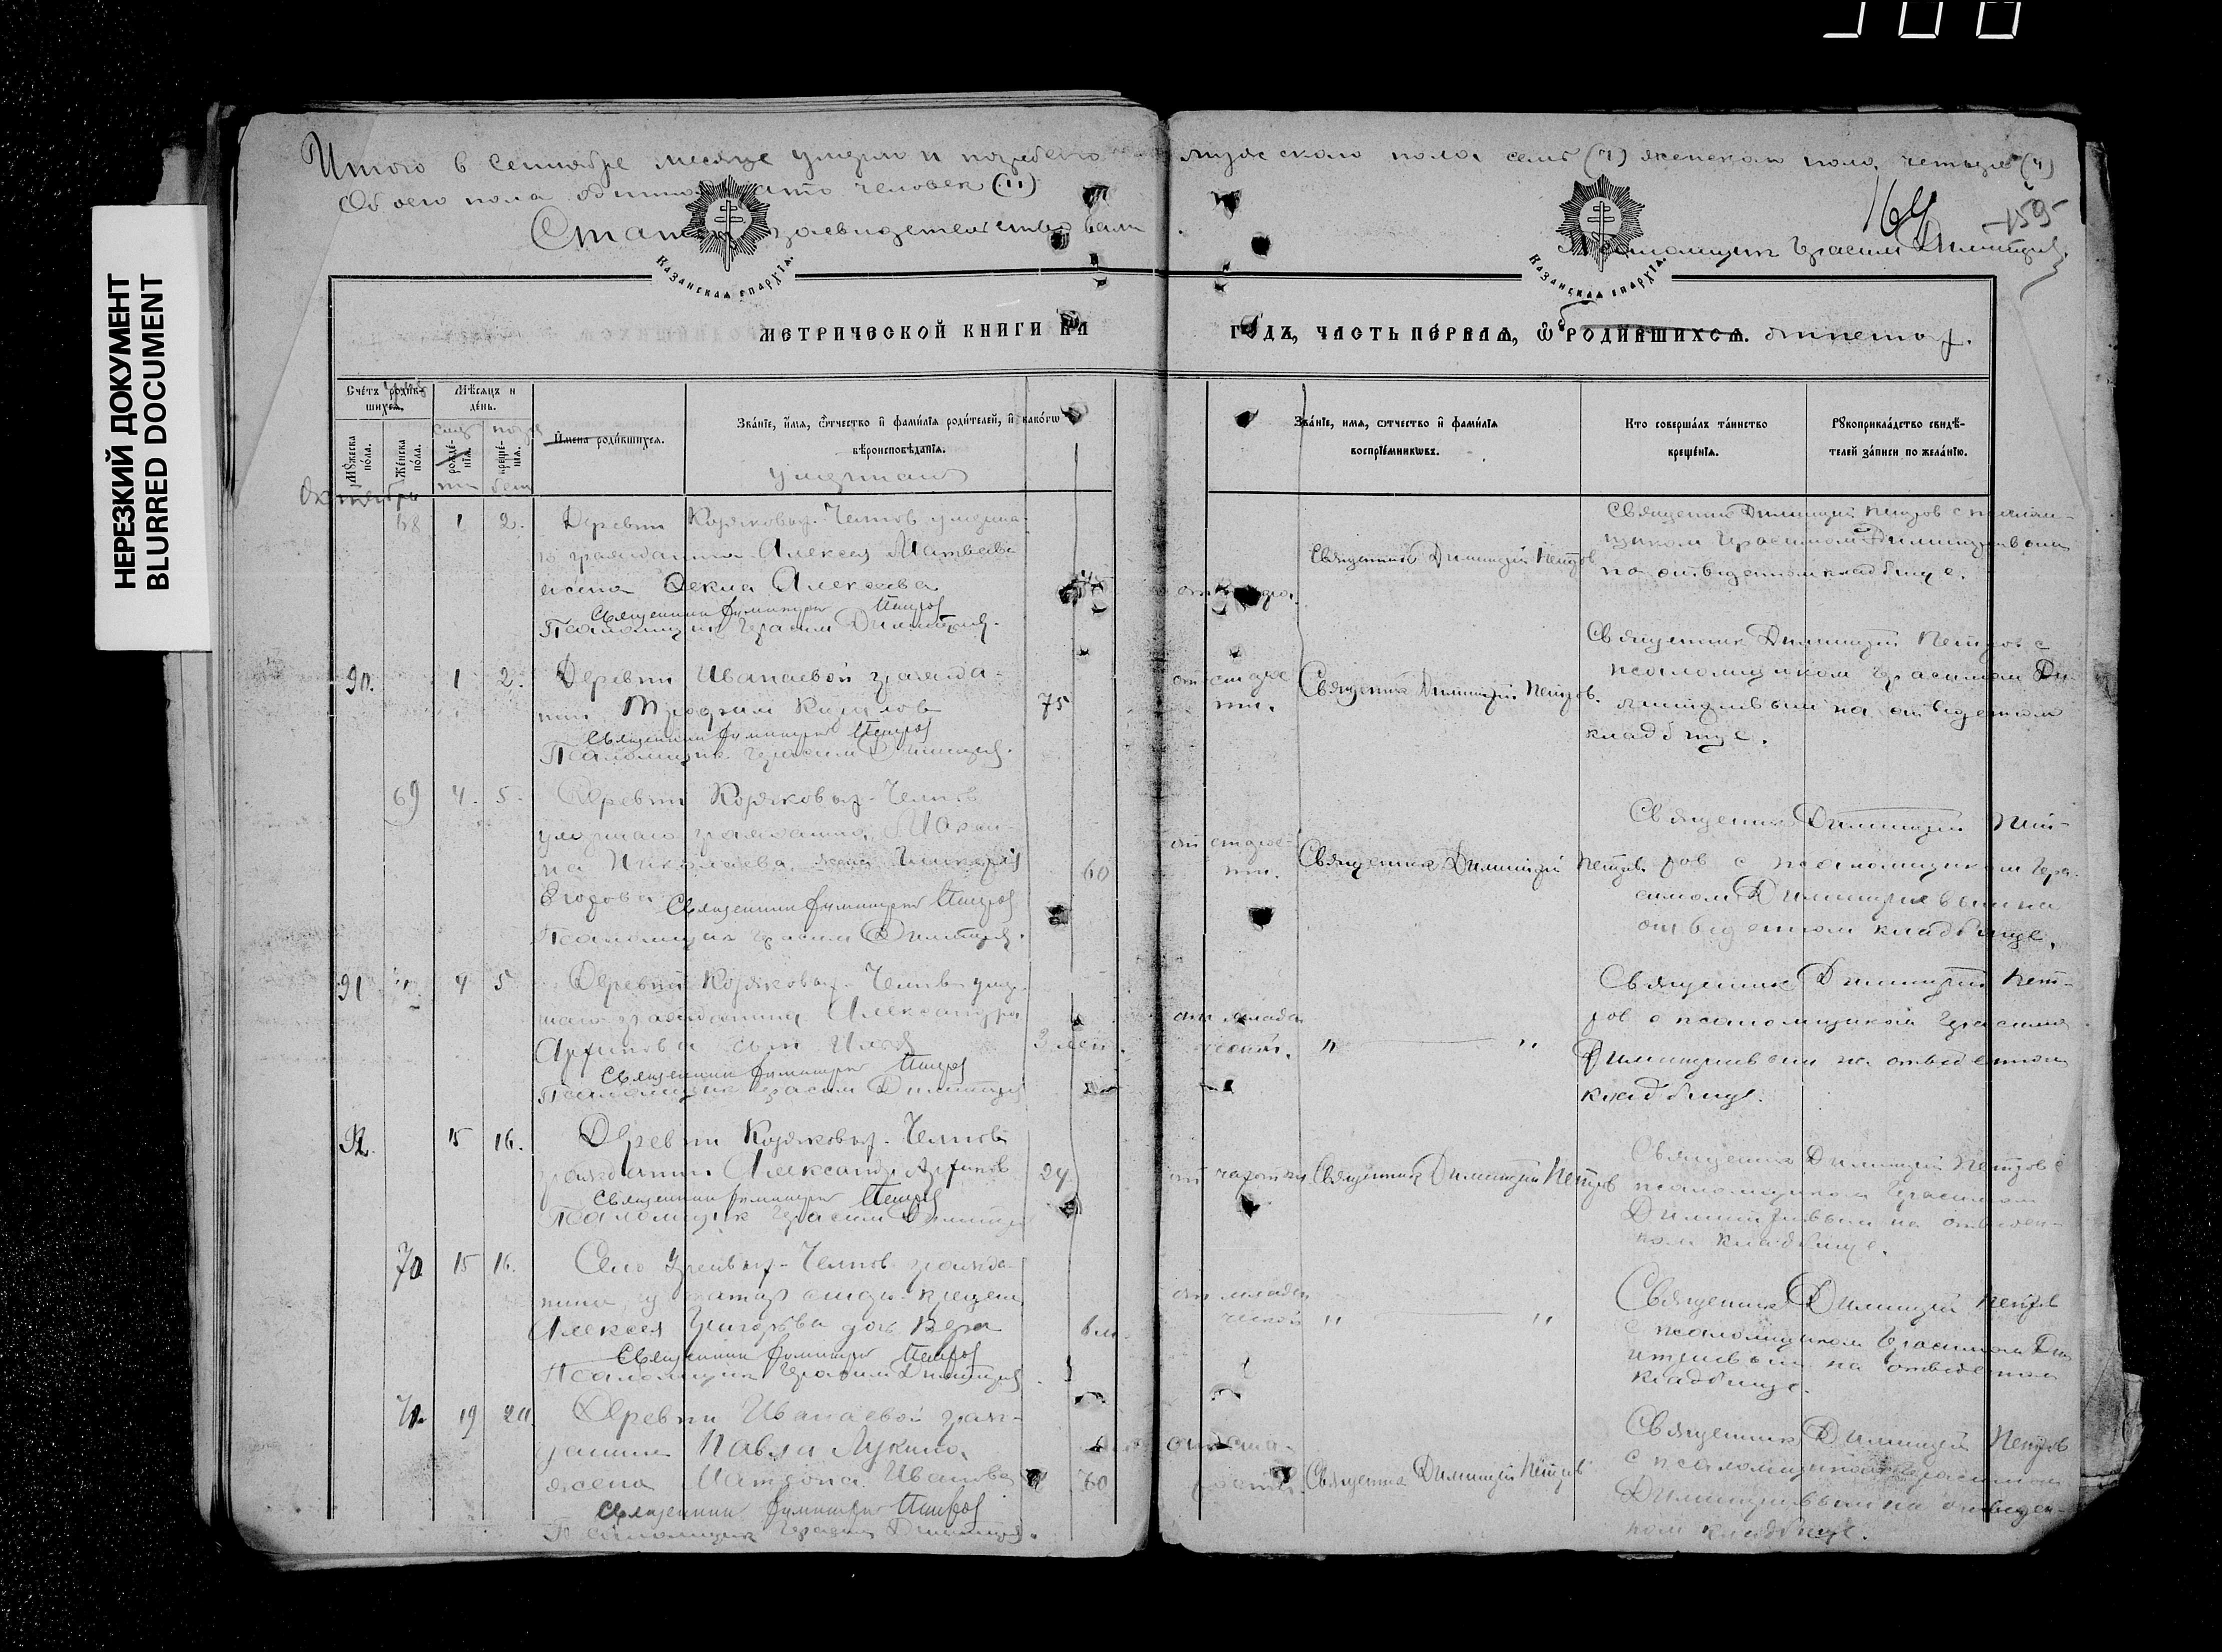 НЕРЕЗКИЙ ДОКУМЕНТ
BLURRED DOCUMENT
Итого в сентябре месяце умерло и погребено мужеского пола семь (7) женского пола четыре (4)
Обоего пола одиннадцать человек (11)
164
159
Псаломщик Герасим Димитриев
КАЗАНСКАѦ ЄПАРХІѦ.
КАЗАНСКАѦ ЄПАРХІѦ.
МЕТРИЧЕСКОЙ КНИГИ НА
ГОДЪ, ЧАСТЬ ПЕРВАѦ, Ѽ РОДИВШИХСѦ.
Счетъ родив-
шихсѧ.
Мѣсѧцъ и
день.
Мꙋжеска
пола.
Женска
пола.
рожде-
нїѧ.
креще-
нїѧ.
Имена родившихсѧ.
Званїе, имѧ, ѿчество и фамилїѧ родителей, и какогѡ
вѣроисповѣданїѧ.
умершаго
Званїе, имѧ, ѿчество и фамилїѧ
воспрїемникѡвъ.
Кто совершалъ таинство
крещенїѧ.
Рꙋкоприкладство свидѣ-
телей записи по желанїю.
октябрь
68 1 2. Деревни Коряковых-Челнов умерша-
го гражданина Алексея Матвеева
жена Фекла Алексеева
Священник Димитрий Петров
Псаломщик Герасим Димитриев.
Священник Димитрий Петров
Священник Димитрий Петров с псалом-
щиком Герасимом Димитриевым
на отведенном кладбище.
90. 1 2. Деревни Иванаевой гражда-
нин Трофим Кирилов
75
от старос
ти.
Священник Димитрий Петров
Псаломщик Герасим Димитриев.
Священник Димитрий Петров.
Священник Димитрий Петров с
псаломщиком Герасимом Ди-
митриевым на отведенном
кладбище.
69 4. 5. Деревни Коряковых-Челнов
умершаго гражданина
на Николаева жена Гликерия
Егорова
60
от старос-
ти.
Священник Димитрий Петров
Псаломщик Герасим Димитриев.
Священник Димитрий Петров
Священник Димитрий Пет-
ров с псаломщиком Гера-
симом Димитриевым на
отведенном кладбище.
91 4 5 Деревни Коряковых-Челнов умер-
шаго гражданина Александра
сын Илья
3 лет.
от младен
ческой.
" "
Священник Димитрий Петров
Псаломщик Герасим Димитриев
Священник Димитрий Пет-
ров с псаломщиком Герасимом
Димитриевым на отведенном
кладбище.
92. 15 16. Деревни Коряковых-Челнов
гражданин Александр
24
от чахотки
Священник Димитрий Петров
Псаломщик Герасим Димитриев
Священник Димитрий Петров
Священник Димитрий Петров с
псаломщиком Герасимом
Димитриевым на отведен-
ном кладбище.
70 15 16. Село Челнов гражда-
нина из татар старо-крещен
Алексея Григорьева дочь Вера
6 м.
от младен
ческой
" "
Священник Димитрий Петров
Псаломщик Герасим Димитриев
Священник Димитрий Петров
с псаломщиком Герасимом Дим
итриевым на отведенном
кладбище.
71. 19 20. Деревни Иванаевой граж-
данина Павла Лукина
жена Матрона Иванова
60
от ста-
рости
Священник Димитрий Петров
Псаломщик Герасим Димитриев.
Священник Димитрий Петров
Священник Димитрий Петров
с псаломщиком Герасимом
Димитриевым на отведен-
ном кладбище.